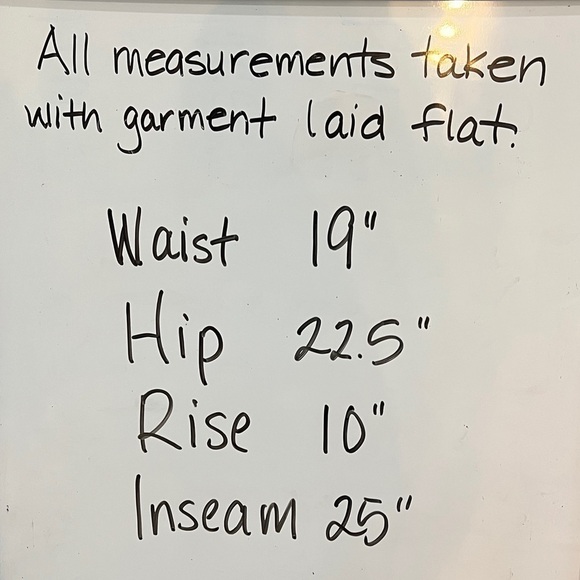 All measurements taken
with garment laid flat.
Waist 19"
Hip 22.5"
Rise 10"
Inseam 25"